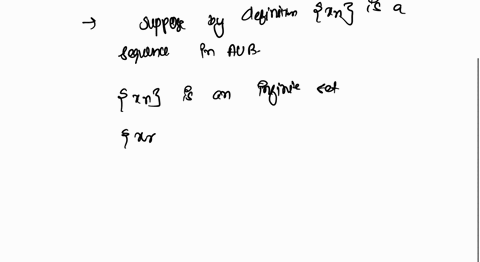 → suppose by definition {xn} is a
sequence in AUB.
{xn} is an infinite set
{xr